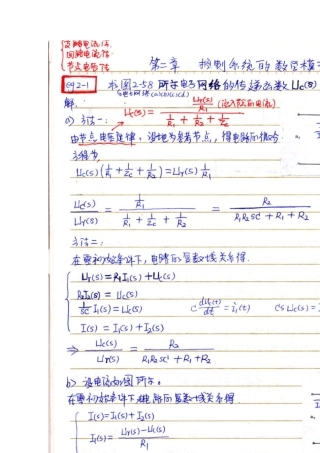 支路电流法
回路电流法
节点电压法
第二章 控制系统的数学模
例2-1 求图2-58所示电子网络的传递函数 Uc(s)
解:
Uc(s) = (Ur(s)/R1) / (1/R1 + 1/R2 + 1/Zc) (流入的电流)
a) 方法一:
由节点电压定律,设地为参考节点,得电路的
方程为
Uc(s)(1/R1 + 1/Zc + 1/R2) = Ur(s) 1/R1
Uc(s)/Ur(s) = (1/R1) / (1/R1 + 1/Zc + 1/R2) = R2 / (R1R2SC + R1 + R2)
方法二:
在零初始条件下,电路的复数域关系得.
Ur(s) = R1I(s) + Uc(s)
R2I2(s) = Uc(s)
1/SC I1(s) = Uc(s) C dUc(t)/dt = i1(t) CSUc(s) =
I(s) = I1(s) + I2(s)
⇒ Uc(s)/Ur(s) = R2 / (R1R2SC + R1 + R2)
b) 设电流如图所示.
在零初始条件下,电路的复数域关系得
I(s) = I1(s) + I2(s)
I1(s) = (Ur(s) - Uc(s)) / R1